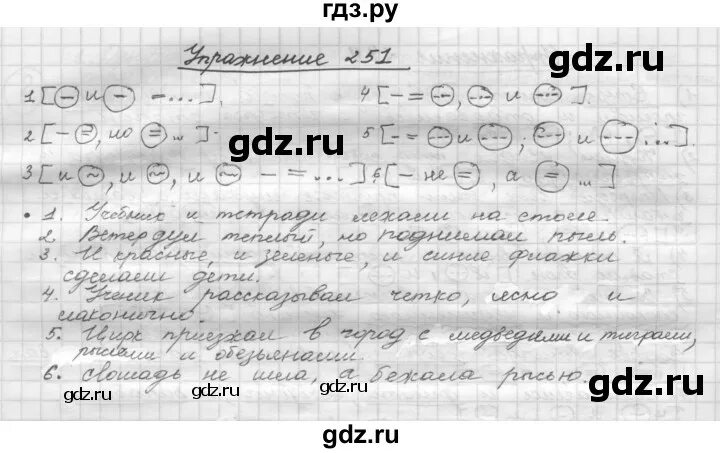 гдз.ру
Упражнение 251
gdz.ru gdz.ru
1 [⊖ и ⊖ = ...]. 4 [− = , и ].
2 [− =, но = ...]. 5 [− = и ; и ...].
3 [и ~, и ~, и ~ − = ...]. 6 [− не =, а = ...]
• 1. Учебник и тетради лежали на столе.
2. Ветер дул теплый, но поднимал пыль.
3. И красные, и зеленые, и синие флажки
сделали дети.
4. Ученик рассказывал четко, ясно и
лаконично.
5. Цирк приезжал в город с медведями и тиграми,
рысями и обезьянами.
6. Лошадь не шла, а бежала рысью.
gdz.ru gdz.ru gdz.ru
gdz.ru